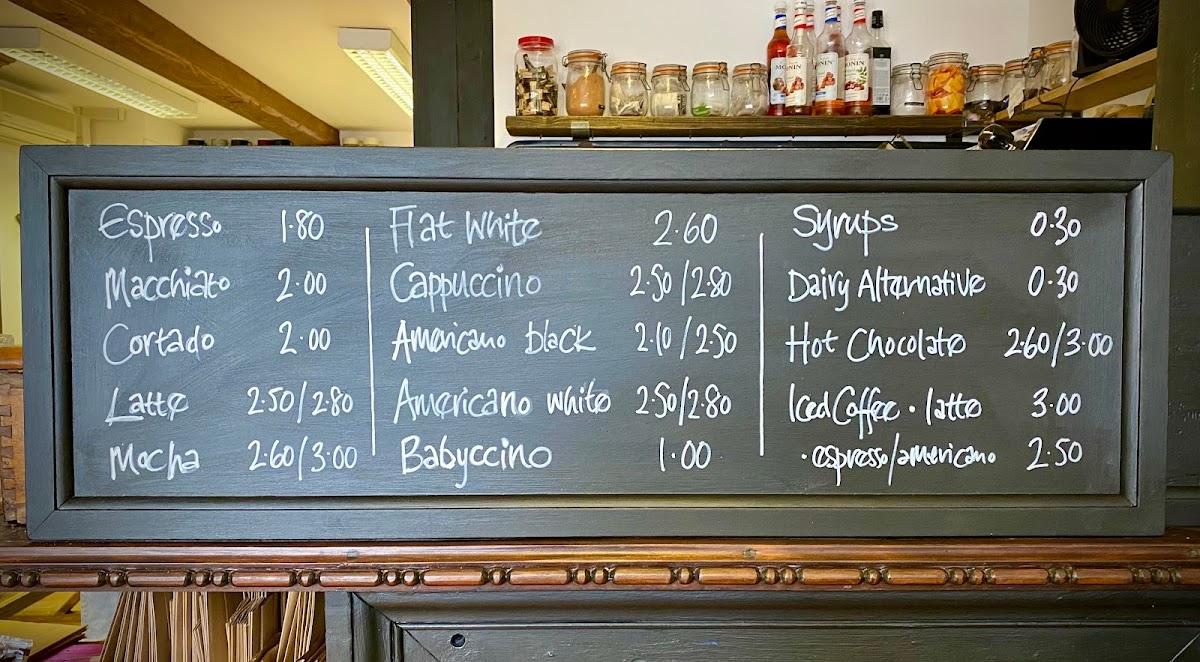 MONIN
MONIN
MONIN
MONIN
Espresso 1.80
Macchiato 2.00
Cortado 2.00
Latte 2.50/2.80
Mocha 2.60/3.00
Flat White 2.60
Cappuccino 2.50/2.80
Americano black 2.10/2.50
Americano white 2.50/2.80
Babyccino 1.00
Syrups 0.30
Dairy Alternative 0.30
Hot Chocolate 2.60/3.00
Iced Coffee · latte 3.00
· espresso/americano 2.50